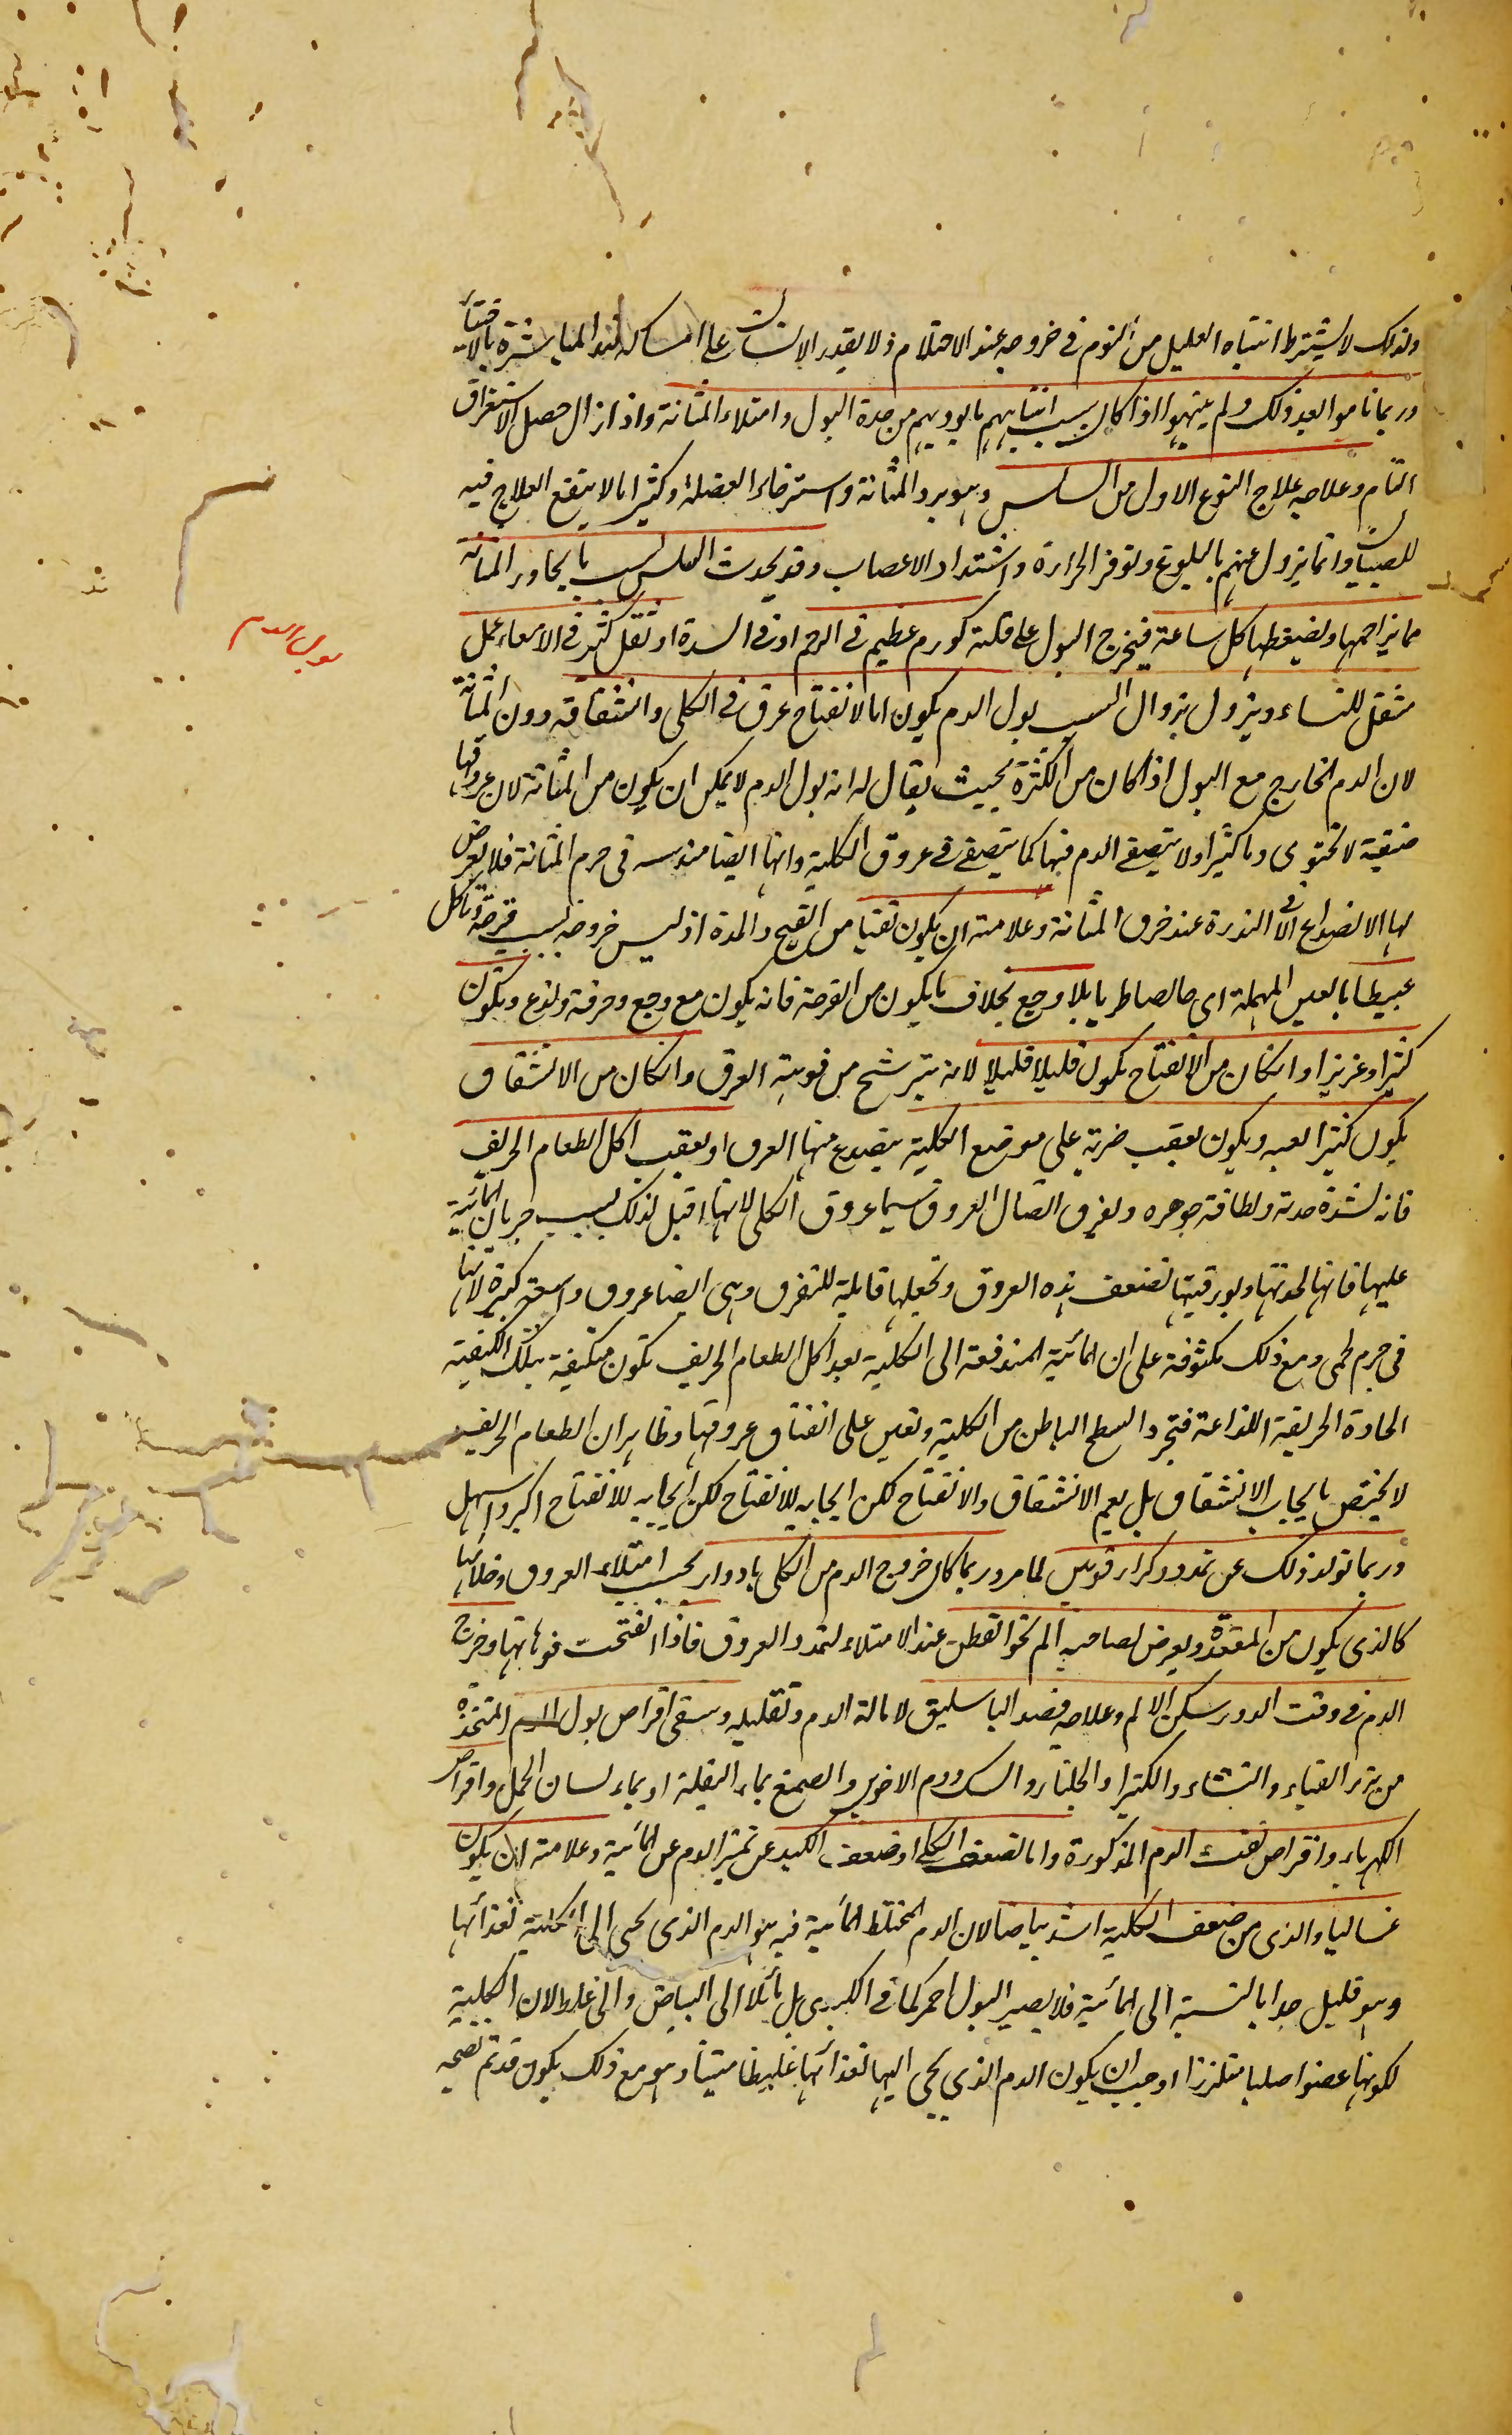 ولذلك لا يشترط انتباه العليل من النوم فى خروجه عند الاحتلام ولا يقدر الانسان على امساكه عند المباشرة بالاختيار
وربما ناموا بعد ذلك ولم ينتبهوا اذا كان سبب انتباههم ما يوذيهم من حدة البول وامتلاء المثانة واذا زال حصل الاستغراق
التام وعلاجه علاج النوع الاول من السلس وهو برد المثانة واسترخاء العضلة وكثيرا ما لا ينفع العلاج فيه
للصبيان وانما يزول عنهم بالبلوغ وتوفر الحرارة واشتداد الاعصاب وقد يحدث السلس بسبب ما يجاور المثانة
مما يزاحمها ويضغطها كل ساعة فيخرج البول على قلته كورم عظيم فى الرحم او فى السرة او ثقل كثير فى الامعاء عمل
مثقل للنساء ويزول بزوال السبب بول الدم يكون اما لانفتاح عرق فى الكلى وانشقاقه دون المثانة
لان الدم الخارج مع البول اذا كان من الكثرة بحيث يقال له انه بول الدم لا يمكن ان يكون من المثانة لان عروقها
ضيقة لا تحتوى دما كثيرا ولا يتصفى الدم فيها كما يتصفى فى عروق الكلية وانها ايضا مندسه فى جرم المثانة فلا يعرض
لها الانصداع الا فى الندرة عند خرق المثانة وعلامته ان يكون نقيا من القيح والمدة اذ ليس خروجه بسبب قرحة وتاكل
عبيطا بالعين المهملة اى خالصا طريا بلا وجع بخلاف ما يكون من القرحة فانه يكون مع وجع وحرقة ولذع ويكون
كثيرا وغزيرا وان كان من الانفتاح يكون قليلا قليلا لانه يترشح من فوهة العرق وان كان من الانشقاق
يكون كثيرا لعبه ويكون بعقب ضربة على موضع الكلية ينصدع منها العرق او بعقب اكل الطعام الحريف
فانه لشدة حدته ولطافة جوهره ويفرق اتصال العروق سيما عروق الكلى لانها اقبل لذلك بسبب جريان المائية
عليها فانها لحدتها ولبورقيتها تضعف هذه العروق وتجعلها قابلة للتفرق وهى ايضا عروق واسعة كبيرة لانها
فى جرم لحمى ومع ذلك مكثوفة على ان المائية المندفعة الى الكلية بعد اكل الطعام الحريف تكون متكيفة بتلك الكيفية
الحادة الحريفة اللذاعة فتجرد السطح الباطن من الكلية وتعين على انفتاق عروقها وظاهر ان الطعام الحريف
لا يختص بايجاب الانشقاق بل يعم الانشقاق والانفتاح لكن ايجابه للانفتاح لكن ايجابه للانفتاح اكبر واسهل
وربما تولد ذلك عن تمدد وكزاز قويين لما مر وربما كان خروج الدم من الكلى بادوار بحسب امتلاء العروق وخلائها
كالذى يكون من المقعدة ويعرض لصاحبه الم نحو القطن عند الامتلاء لتمدد العروق فاذا انفتحت فوهاتها وخرج
الدم فى وقت الدور سكن الالم وعلاجه فصد الباسليق لامالة الدم وتقليله وسقى اقراص بول الدم المتخذة
من بزر القثاء والنشاء والكثيرا والجلنار والسك ودم الاخوين والصمغ بماء البقلة او بماء لسان الحمل واقراص
الكهرباء واقراص نفث الدم المذكورة واما لضعف الكلى او ضعف الكبد عن تميز الدم عن المائية وعلامته ان يكون
غساليا والذى من ضعف الكلية اشد بياضا لان الدم المختلط المائية فيه هو الدم الذى يجى الى الكلية لغذائها
وهو قليل جدا بالنسبة الى المائية فلا يصير البول احمر كما فى الكبدى بل مائلا الى البياض والى غلظ لان الكلية
لكونها عضوا صلبا متلززا وجب ان يكون الدم الذى يجى اليها لغذائها غليظا متينا وهو مع ذلك يكون قد تم نضجه
بول الدم